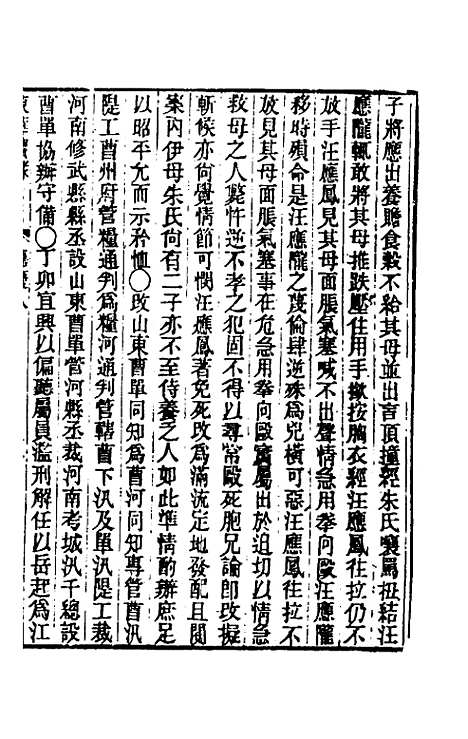 子將應出養贍食穀不給其母並出言頂撞經朱氏嚷罵扭結汪
應隴輒敢將其母推跌壓住用手揿按胸衣經汪應鳳往拉仍不
放手汪應鳳見其母面脹氣塞喊不出聲情急用拳向毆汪應隴
移時殞命是汪應隴之蔑倫肆逆殊為兇橫可惡汪應鳳往拉不
放見其母面脹氣塞事在危急用拳向毆實屬出於迫切以情急
救母之人斃忤逆不孝之犯固不得以尋常毆死胞兄論即改擬
斬候亦尚覺情節可憫汪應鳳者免死改為滿流定地發配且閱
案內伊母朱氏尚有二子亦不至侍養乏人如此準情酌辦庶足
以昭平允而示矜恤〇改山東曹單同知為曹河同知專管曹汛
隄工曹州府管糧通判為糧河通判管轄曹下汛及單汛隄工裁
河南修武縣縣丞設山東曹單管河縣丞裁河南考城汛千總設
曹單協辦守備〇丁卯宜興以偏聽屬員濫刑解任以岳起為江